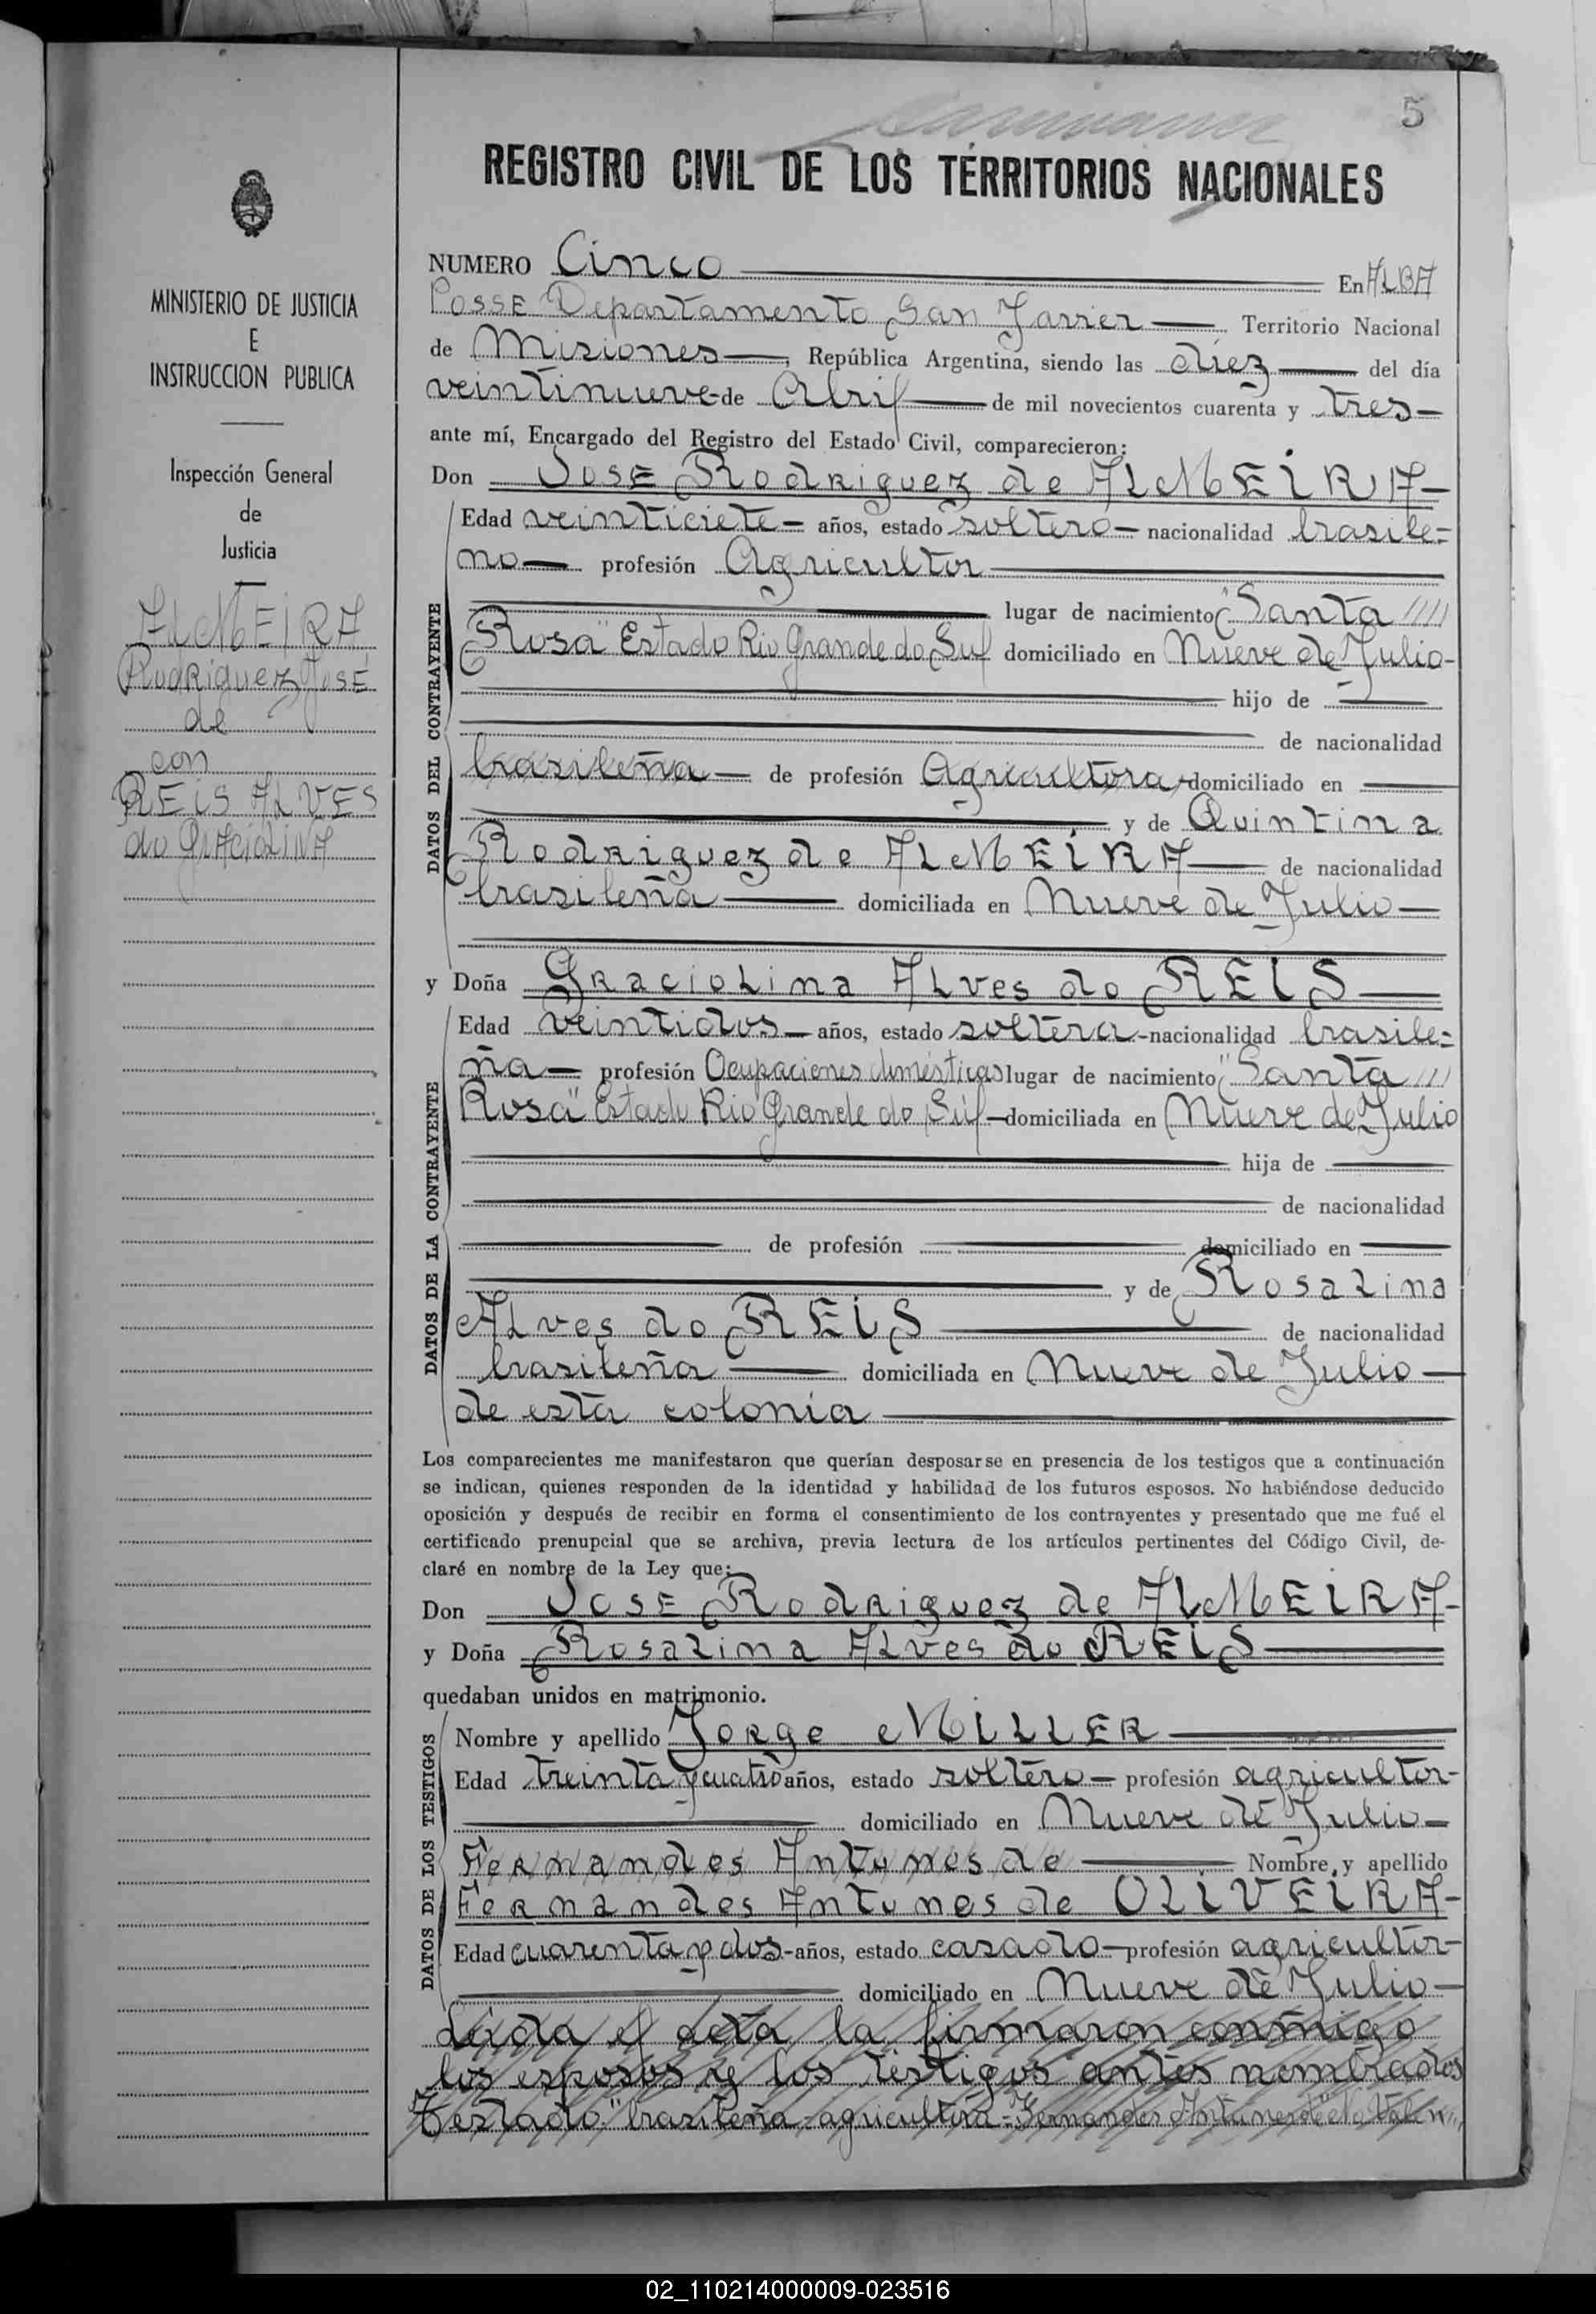 5
REGISTRO CIVIL DE LOS TERRITORIOS NACIONALES
MINISTERIO DE JUSTICIA
E
INSTRUCCION PUBLICA
Inspección General
de
Justicia
ALMEIRA
Rodriguez José
de
con
REIS ALVES
do GRACIOLINA
NUMERO Cinco En ALBA
POSSE Departamento San Javier Territorio Nacional
de Misiones, República Argentina, siendo las diez del día
veintinueve de Abril de mil novecientos cuarenta y tres
ante mí, Encargado del Registro del Estado Civil, comparecieron:
Don JOSE Rodriguez de ALMEIRA
DATOS DEL CONTRAYENTE
Edad veinticiete años, estado soltero nacionalidad brasile=
no profesión Agricultor
lugar de nacimiento "Santa
Rosa" Estado Rio Grande do Sul domiciliado en Nueve de Julio
hijo de
de nacionalidad
brasileña de profesión Agricultora domiciliado en
y de Quintina
Rodriguez de ALMEIRA de nacionalidad
brasileña domiciliada en Nueve de Julio
y Doña Graciolina Alves do REIS
DATOS DE LA CONTRAYENTE
Edad veintidos años, estado soltera nacionalidad brasile=
ña profesión Ocupaciones domésticas lugar de nacimiento "Santa
Rosa" Estado Rio Grande do Sul domiciliada en Nueve de Julio
hija de
de nacionalidad
de profesión domiciliado en
y de Rosalina
Alves do REIS de nacionalidad
brasileña domiciliada en Nueve de Julio
de esta colonia
Los comparecientes me manifestaron que querían desposarse en presencia de los testigos que a continuación
se indican, quienes responden de la identidad y habilidad de los futuros esposos. No habiéndose deducido
oposición y después de recibir en forma el consentimiento de los contrayentes y presentado que me fué el
certificado prenupcial que se archiva, previa lectura de los artículos pertinentes del Código Civil, de-
claré en nombre de la Ley que:
Don JOSE Rodriguez de ALMEIRA
y Doña Rosalina Alves do REIS
quedaban unidos en matrimonio.
DATOS DE LOS TESTIGOS
Nombre y apellido Jorge MILLER
Edad treinta y cuatro años, estado soltero profesión agricultor
domiciliado en Nueve de Julio
Fernandes Antunes de Nombre y apellido
Fernandes Antunes de OLIVEIRA
Edad cuarenta y dos años, estado casado profesión agricultor
domiciliado en Nueve de Julio
Leida el acta la firmaron conmigo
los esposos y los testigos antes nombrados
Testado: "brasileña-agricultora-Fernandes Antunes de"
02_110214000009-023516